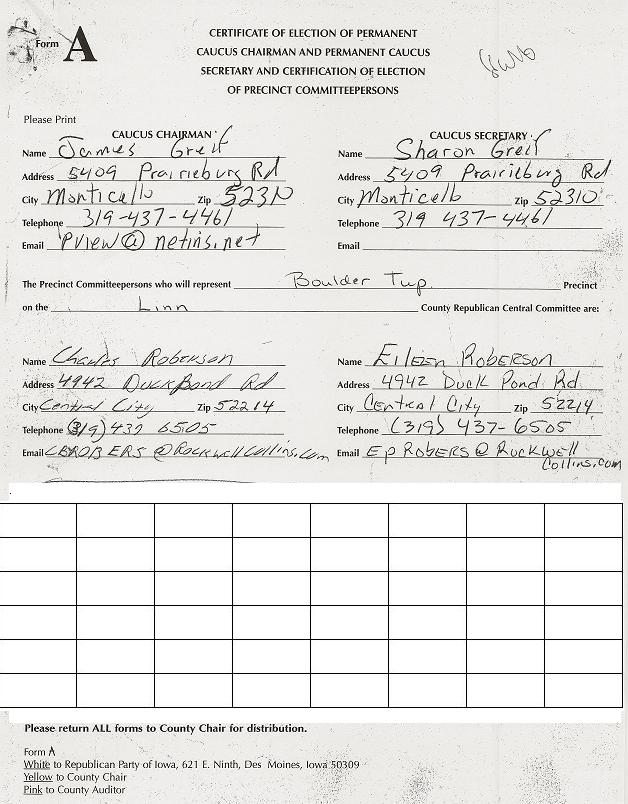 Form A
CERTIFICATE OF ELECTION OF PERMANENT
CAUCUS CHAIRMAN AND PERMANENT CAUCUS
SECRETARY AND CERTIFICATION OF ELECTION
OF PRECINCT COMMITTEEPERSONS
Please Print
CAUCUS CHAIRMAN
Name James Greif
Address 5409 Prairieburg Rd
City Monticello Zip 52310
Telephone 319-437-4461
Email Pview@netins.net
CAUCUS SECRETARY
Name Sharon Greif
Address 5409 Prairieburg Rd
City Monticello Zip 52310
Telephone 319 437-4461
Email
The Precinct Committeepersons who will represent Boulder Twp. Precinct
on the Linn County Republican Central Committee are:
Name Charles Roberson
Address 4942 Duck Pond Rd
City Central City Zip 52214
Telephone (319) 437 6505
Email CBROBERS@RockwellCollins.com
Name EILEEN ROBERSON
Address 4942 Duck Pond Rd
City Central City Zip 52214
Telephone (319) 437-6505
Email EpRobers@Rockwell
Collins.com
Please return ALL forms to County Chair for distribution.
Form A
White to Republican Party of Iowa, 621 E. Ninth, Des Moines, Iowa 50309
Yellow to County Chair
Pink to County Auditor